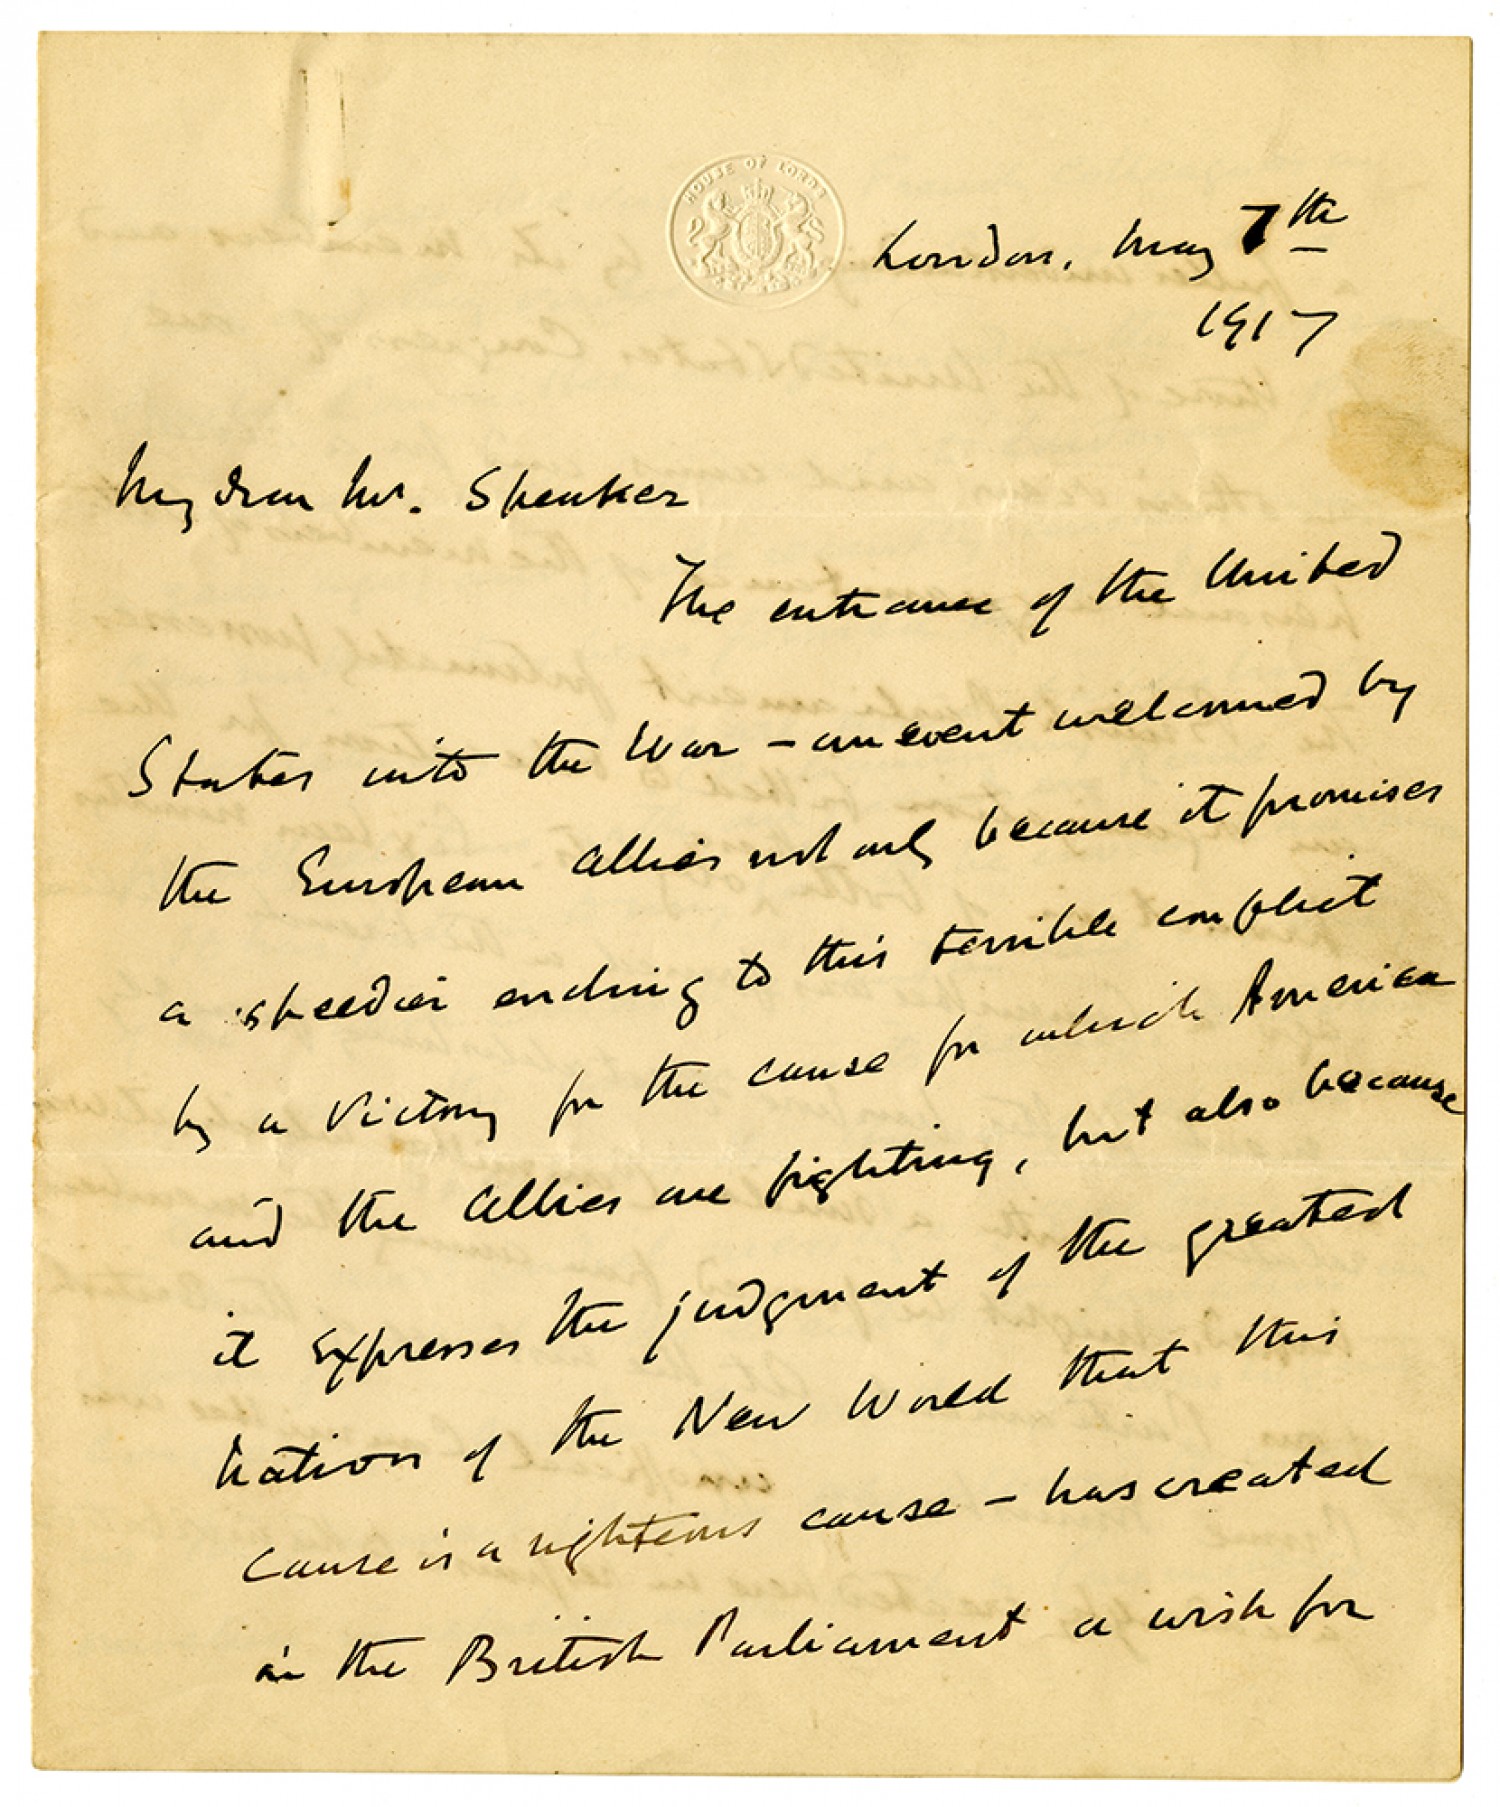 HOUSE OF LORDS
London, May 7th
1917
My dear Mr. Speaker
The entrance of the United
States into the War – an event welcomed by
the European Allies not only because it promises
a speedier ending to this terrible conflict
by a Victory for the cause for which America
and the Allies are fighting, but also because
it expresses the judgment of the greatest
nation of the New World that this
cause is a righteous cause – has created
in the British Parliament a wish for